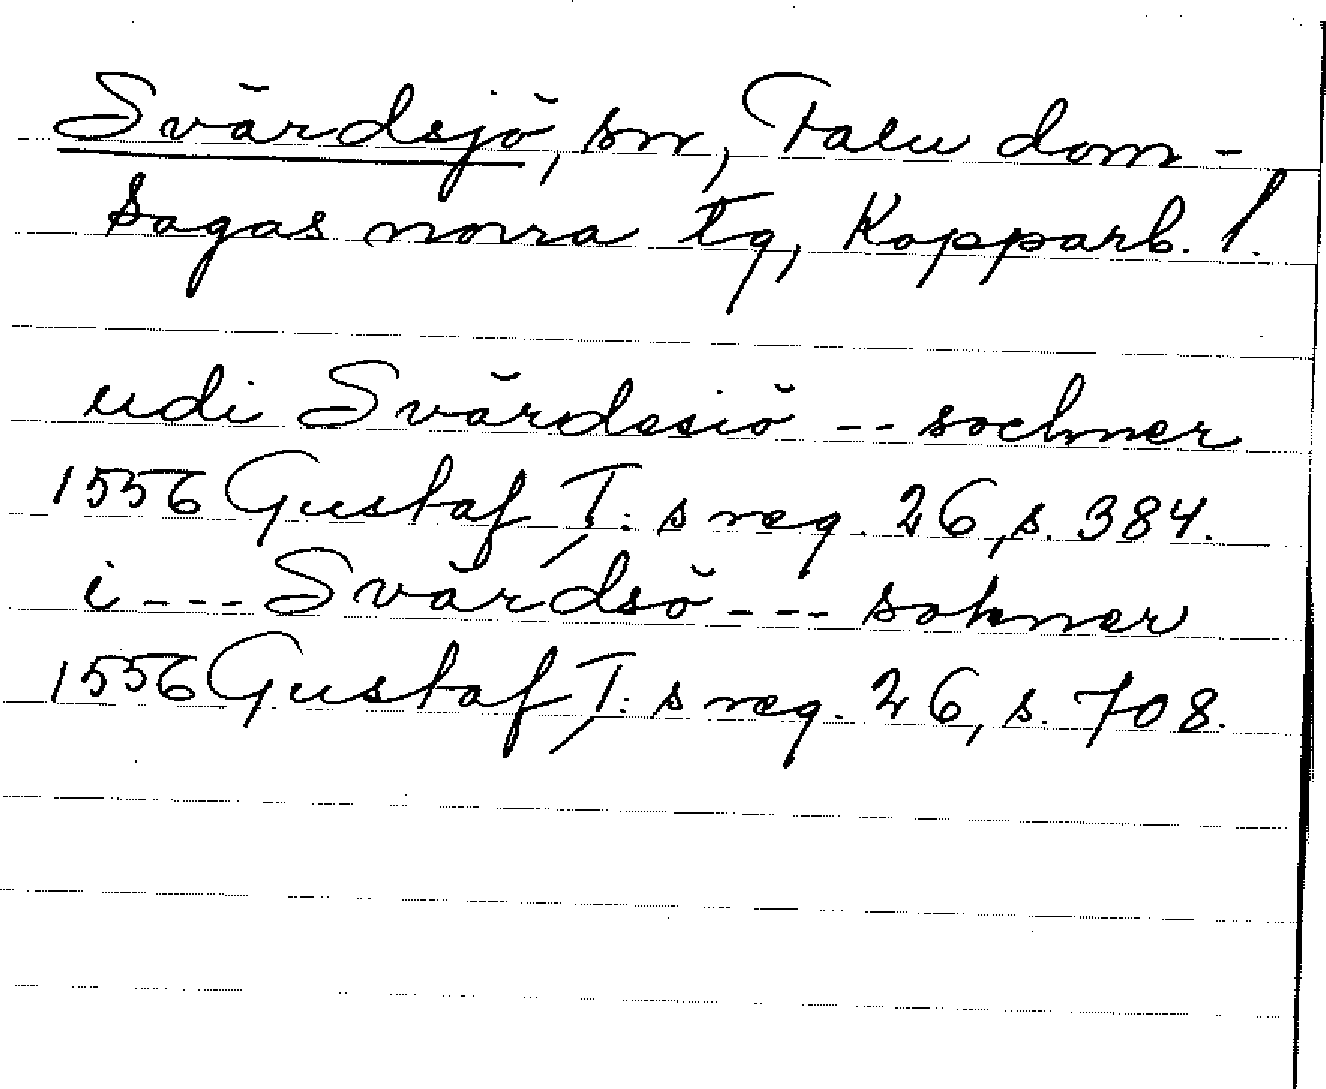 Svärdsjö, sn, Falu dom-
sagas norra tg, Kopparb. l.
udi Svärdesiö -- sochner
1556 Gustaf I: s reg. 26, s. 384.
i --- Svärdsö --- sokner
1556 Gustaf I: s reg. 26, s. 708.